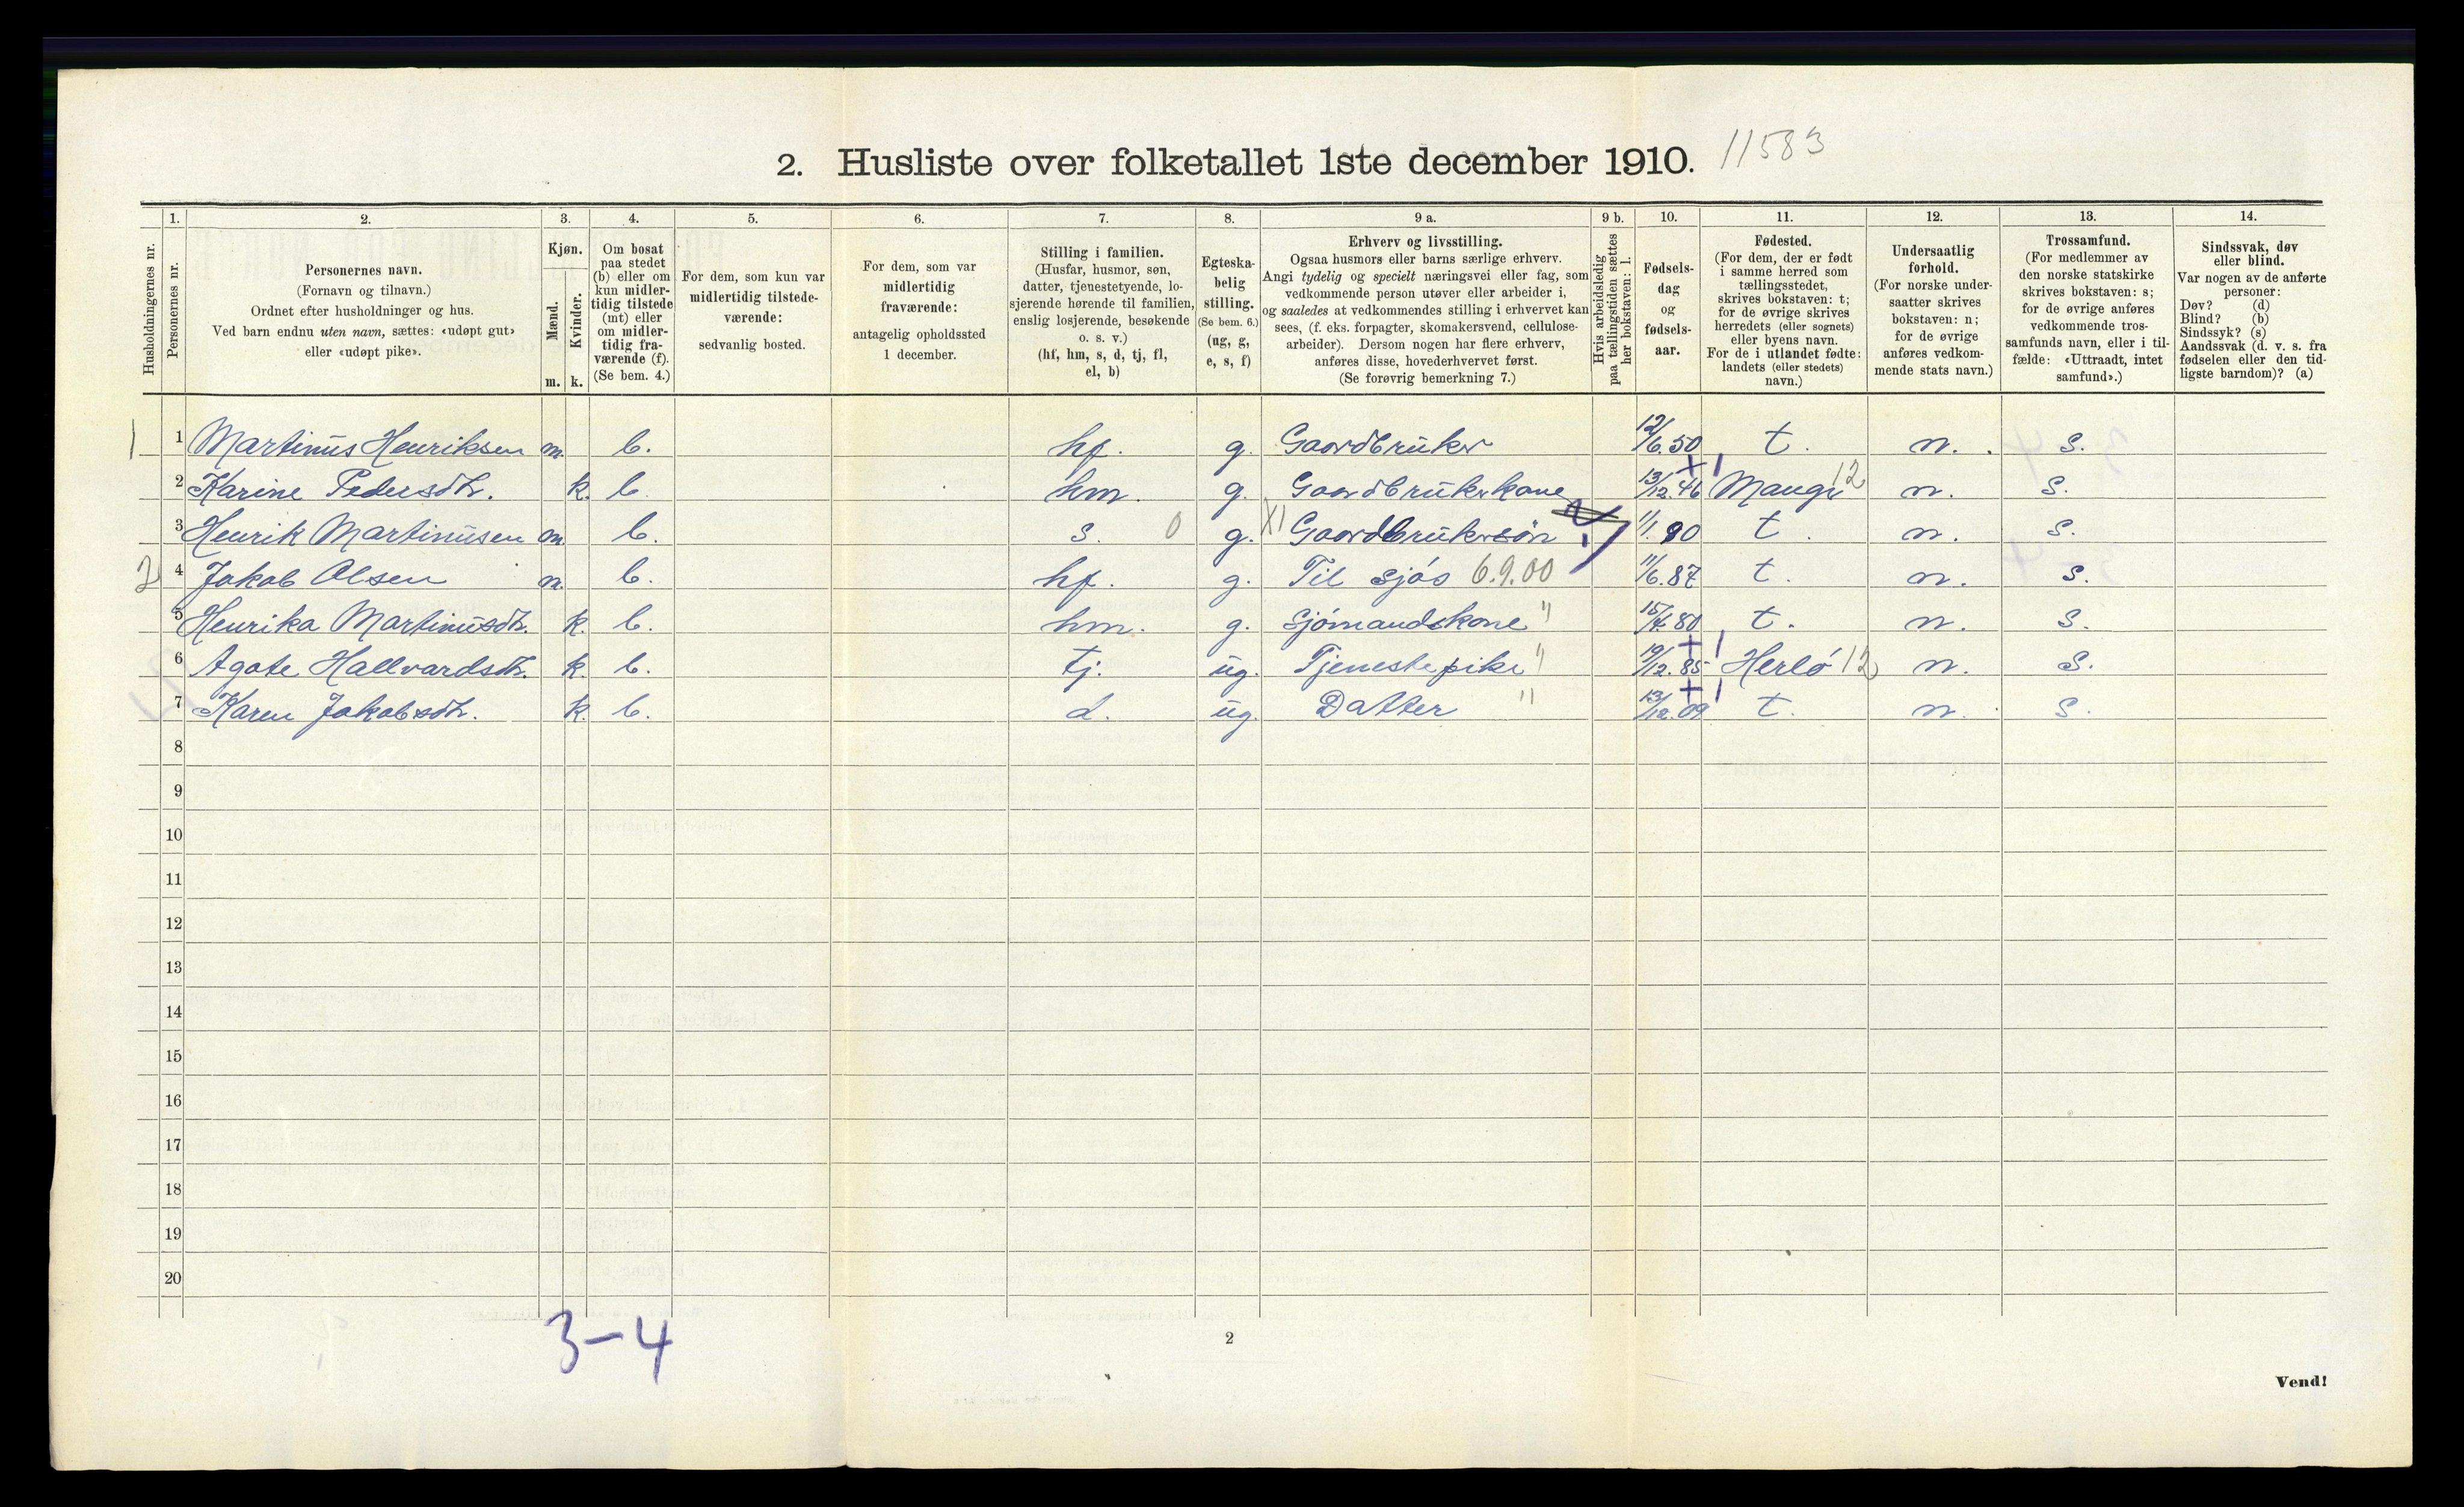 2. Husliste over folketallet 1ste december 1910. 11583
1. 2. 3. 4. 5. 6. 7. 8. 9 a. 9 b. 10. 11. 12. 13. 14.
Husholdningernes nr.
Personernes nr.
Personernes navn.
(Fornavn og tilnavn.)
Ordnet efter husholdninger og hus.
Ved barn endnu uten navn, sættes: «udøpt gut»
eller «udøpt pike».
Kjøn.
Mænd.
Kvinder.
m. k.
Om bosat
paa stedet
(b) eller om
kun midler-
tidig tilstede
(mt) eller
om midler-
tidig fra-
værende (f).
(Se bem. 4.)
For dem, som kun var
midlertidig tilstede-
værende:
sedvanlig bosted.
For dem, som var
midlertidig
fraværende:
antagelig opholdssted
1 december.
Stilling i familien.
(Husfar, husmor, søn,
datter, tjenestetyende, lo-
sjerende hørende til familien,
enslig losjerende, besøkende
o. s. v.)
(hf, hm, s, d, tj, fl,
el, b)
Egteska-
belig
stilling.
(Se bem. 6.)
(ug, g,
e, s, f)
Erhverv og livsstilling.
Ogsaa husmors eller barns særlige erhverv.
Angi tydelig og specielt næringsvei eller fag, som
vedkommende person utøver eller arbeider i,
og saaledes at vedkommendes stilling i erhvervet kan
sees, (f. eks. forpagter, skomakersvend, cellulose-
arbeider). Dersom nogen har flere erhverv,
anføres disse, hovederhvervet først.
(Se forøvrig bemerkning 7.)
Hvis arbeidsledig
paa tællingstiden sættes
her bokstaven: l.
Fødsels-
dag
og
fødsels-
aar.
Fødested.
(For dem, der er født
i samme herred som
tællingsstedet,
skrives bokstaven: t;
for de øvrige skrives
herredets (eller sognets)
eller byens navn.
For de i utlandet fødte:
landets (eller stedets)
navn.)
Undersaatlig
forhold.
(For norske under-
saatter skrives
bokstaven: n;
for de øvrige
anføres vedkom-
mende stats navn.)
Trossamfund.
(For medlemmer av
den norske statskirke
skrives bokstaven: s;
for de øvrige anføres
vedkommende tros-
samfunds navn, eller i til-
fælde: «Uttraadt, intet
samfund».)
Sindssvak, døv
eller blind.
Var nogen av de anførte
personer:
Døv? (d)
Blind? (b)
Sindssyk? (s)
Aandssvak (d. v. s. fra
fødselen eller den tid-
ligste barndom)? (a)
1 1 Martinus Henriksen m. b. hf. g. Gaardbruker 12/6.50 t. n. s.
2 Karine Pedersdtr. k. b. hm. g. Gaardbrukerkone 13/12.46 Manger 12 n. s.
3 Henrik Martinusen m. b. s. 0 g. X1 Gaardbrukersøn 1/1.90 t. n. s.
2 4 Jakob Olsen m. b. hf. g. Til sjøs 6.9.00 11/6.87 t. n. s.
5 Henrika Martinusdtr. k. b. hm. g. Sjømandskone " 15/4.80 t. n. s.
6 Agate Hallvardsdtr. k. b. tj. ug. Tjenestepike " 19/12.85 Herlø 12 n. s.
7 Karen Jakobsdtr. k. b. d. ug. Datter " 13/12.09 t. n. s.
8
9
10
11
12
13
14
15
16
17
18
19
20
3-4
2
Vend!